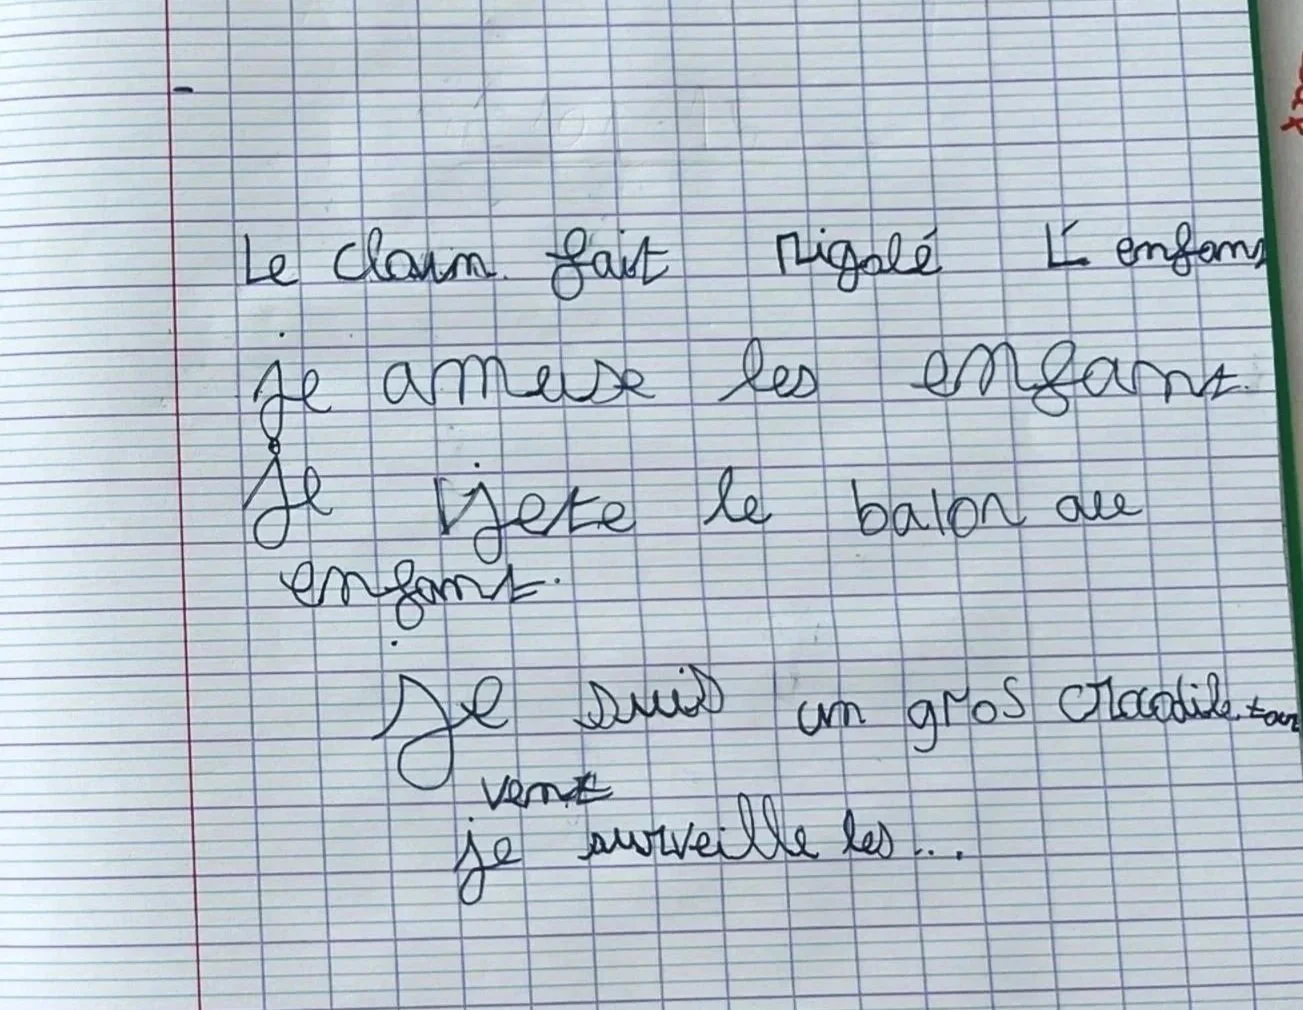 Le claun. fait rigolé L'enfant
je amuse les enfant.
je jete le balon au
enfant.
Je suis un gros crocodile.
vent
je surveille les...